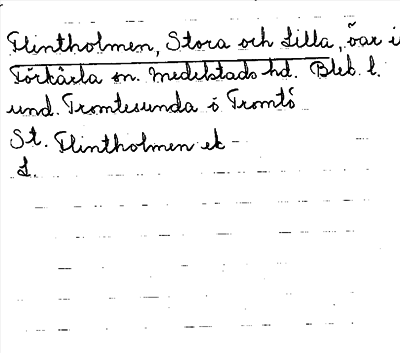 Flintholmen, Stora och Lilla, öar i
Förkärla sn. Medelstads hd. Blek. l.
und. Tromtesunda ö Tromtö
St. Flintholmen ek
L.